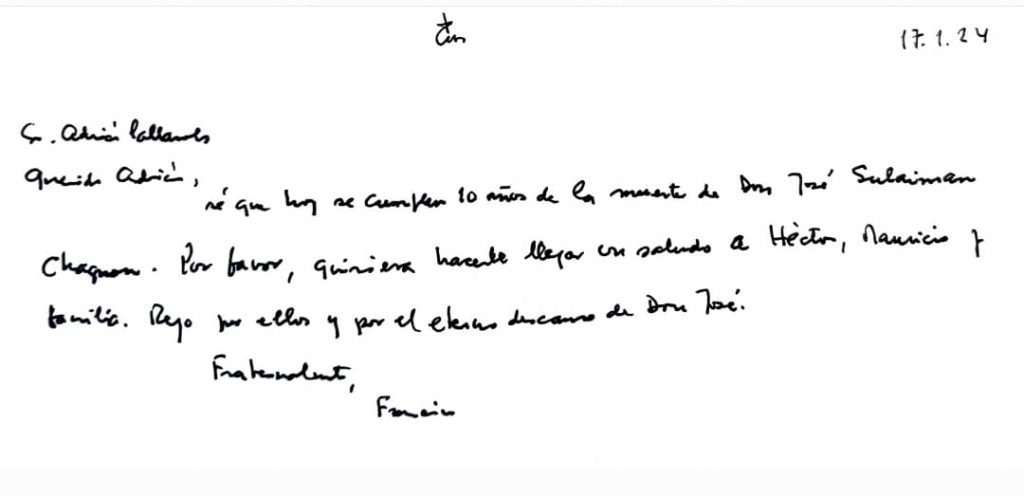 17.1.24
Sr. Adrián Pallarols
Querido Adrián,
sé que hoy se cumplen 10 años de la muerte de Don José Sulaiman
Chagnon. Por favor, quisiera hacerle llegar un saludo a Héctor, Mauricio y
familia. Rezo por ellos y por el eterno descanso de Don José.
Fraternalmente,
Francisco